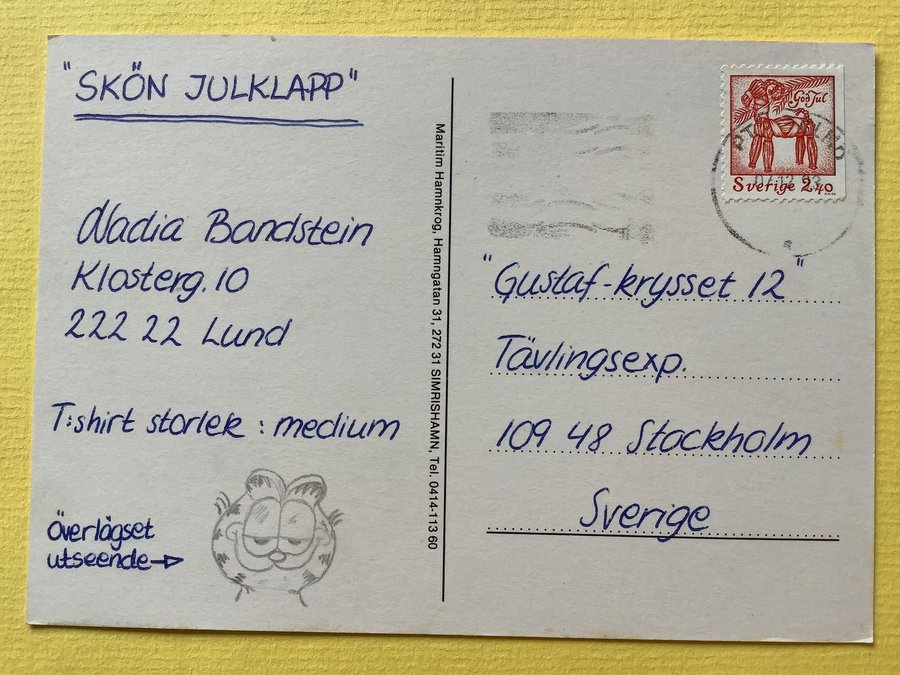 "SKÖN JULKLAPP"
Nadia Bandstein
Klosterg. 10
222 22 Lund
T:shirt storlek : medium
Överlägset
utseende
Maritim Hamnkrog, Hamngatan 31, 272 31 SIMRISHAMN, Tel. 0414-113 60
God Jul
Sverige 2.40
"Gustaf-krysset 12"
Tävlingsexp.
109 48 Stockholm
Sverige